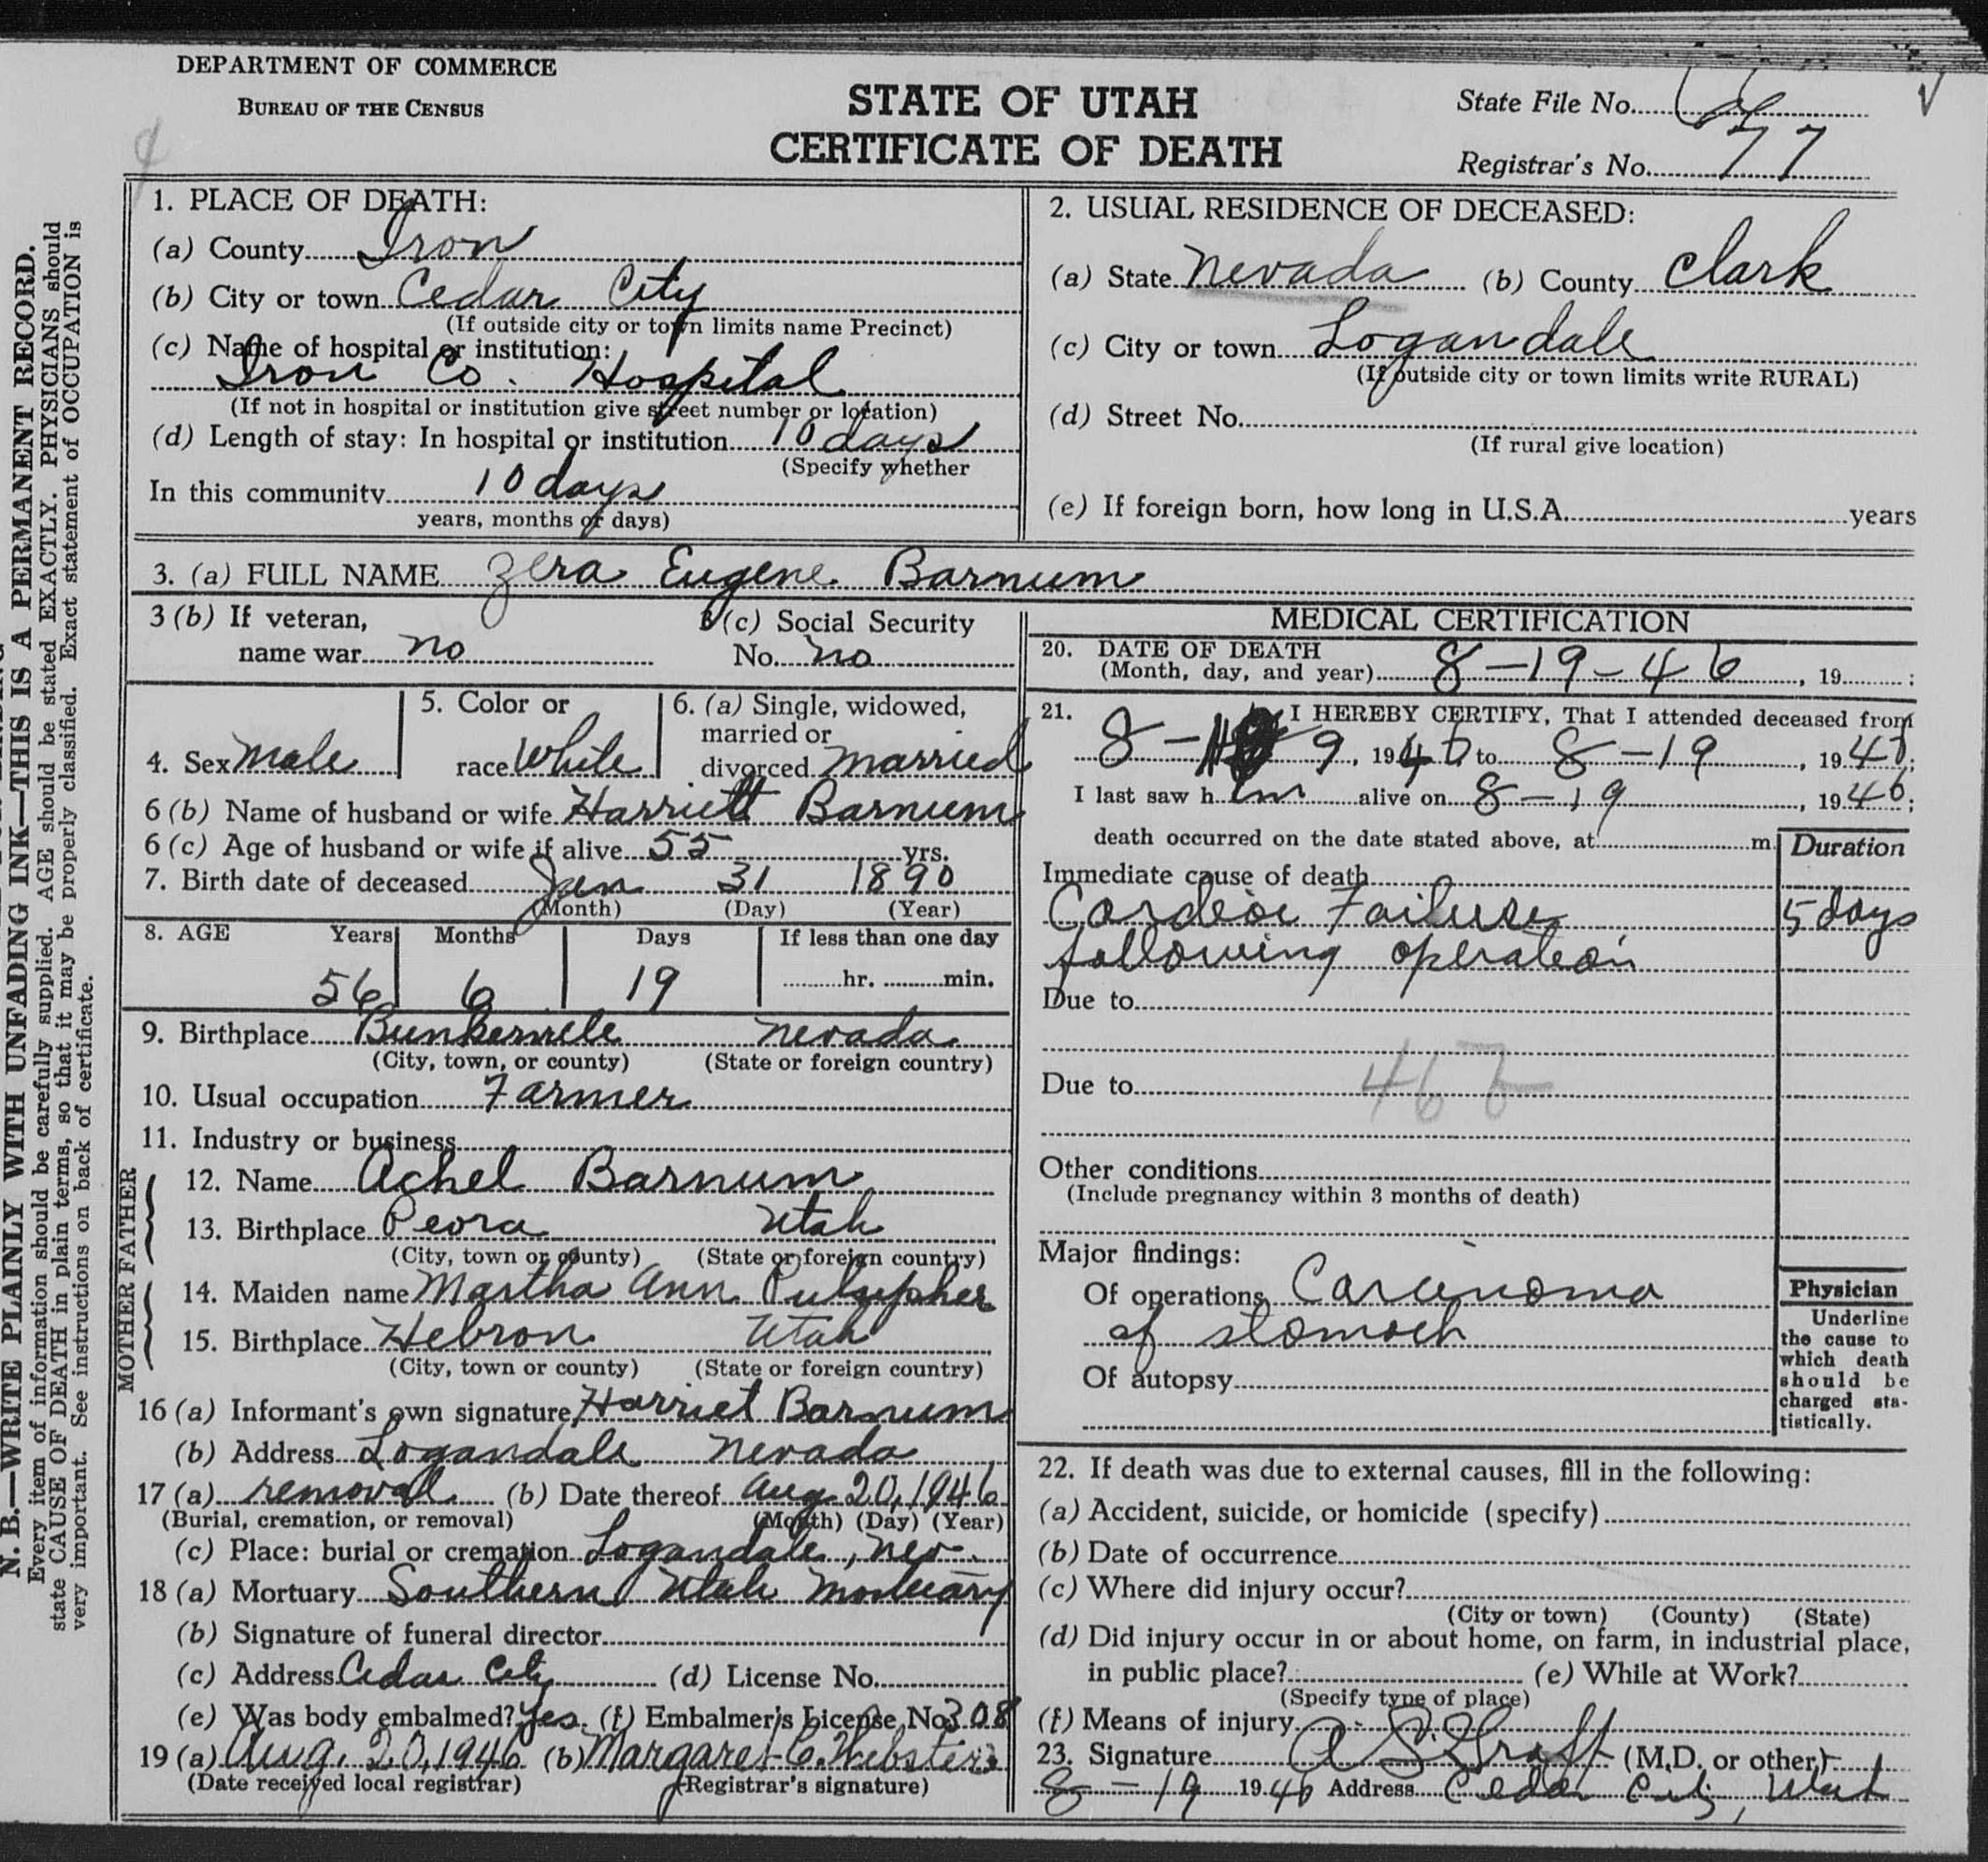 DEPARTMENT OF COMMERCE
BUREAU OF THE CENSUS
STATE OF UTAH
CERTIFICATE OF DEATH
State File No.
Registrar's No. 77
N. B.—WRITE PLAINLY WITH UNFADING INK—THIS IS A PERMANENT RECORD.
Every item of information should be carefully supplied. AGE should be stated EXACTLY. PHYSICIANS should
state CAUSE OF DEATH in plain terms, so that it may be properly classified. Exact statement of OCCUPATION is
very important. See instructions on back of certificate.
1. PLACE OF DEATH:
(a) County Iron
(b) City or town Cedar City
(If outside city or town limits name Precinct)
(c) Name of hospital or institution:
Iron Co. Hospital
(If not in hospital or institution give street number or location)
(d) Length of stay: In hospital or institution 10 days
(Specify whether
In this community 10 days
years, months or days)
2. USUAL RESIDENCE OF DECEASED:
(a) State Nevada (b) County Clark
(c) City or town Logandale
(If outside city or town limits write RURAL)
(d) Street No.
(If rural give location)
(e) If foreign born, how long in U.S.A. years
3. (a) FULL NAME Zera Eugene Barnum
3 (b) If veteran,
name war no
3 (c) Social Security
No. no
4. Sex Male
5. Color or
race White
6. (a) Single, widowed,
married or
divorced Married
6 (b) Name of husband or wife Harriett Barnum
6 (c) Age of husband or wife if alive 55 yrs.
7. Birth date of deceased Jan 31 1890
(Month) (Day) (Year)
8. AGE Years Months Days If less than one day
56 6 19 hr. min.
9. Birthplace Bunkerville Nevada
(City, town, or county) (State or foreign country)
10. Usual occupation Farmer
11. Industry or business
FATHER
12. Name Achel Barnum
13. Birthplace Peora Utah
(City, town or county) (State or foreign country)
MOTHER
14. Maiden name Martha Ann Pulsipher
15. Birthplace Hebron Utah
(City, town or county) (State or foreign country)
16 (a) Informant's own signature Harriet Barnum
(b) Address Logandale Nevada
17 (a) removal (b) Date thereof Aug 20, 1946
(Burial, cremation, or removal) (Month) (Day) (Year)
(c) Place: burial or cremation Logandale, Nev.
18 (a) Mortuary Southern Utah Mortuary
(b) Signature of funeral director
(c) Address Cedar City (d) License No.
(e) Was body embalmed? Yes. (f) Embalmer's License No. 308
19 (a) Aug. 20, 1946 (b) Margaret C. Webster
(Date received local registrar) (Registrar's signature)
MEDICAL CERTIFICATION
20. DATE OF DEATH
(Month, day, and year) 8-19-46, 19 ;
21. I HEREBY CERTIFY, That I attended deceased from
8-9, 1946 to 8-19, 1946;
I last saw him alive on 8-19, 1946;
death occurred on the date stated above, at m.
Duration
Immediate cause of death
Cardiac Failure 5 days
following operation
Due to
Due to
46
Other conditions
(Include pregnancy within 3 months of death)
Major findings:
Of operations Carcinoma
of stomach
Of autopsy
Physician
Underline
the cause to
which death
should be
charged sta-
tistically.
22. If death was due to external causes, fill in the following:
(a) Accident, suicide, or homicide (specify)
(b) Date of occurrence
(c) Where did injury occur?
(City or town) (County) (State)
(d) Did injury occur in or about home, on farm, in industrial place,
in public place? (e) While at Work?
(Specify type of place)
(f) Means of injury
23. Signature (M.D. or other)
8-19 1946 Address Cedar City, Utah